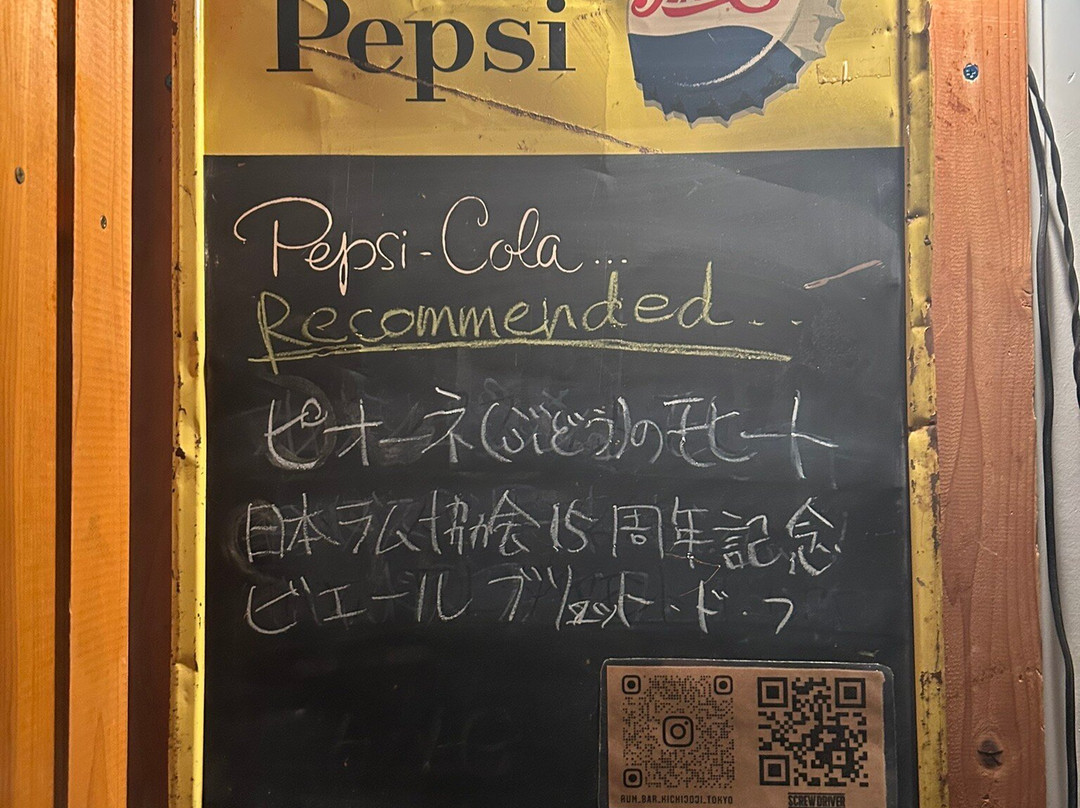 Pepsi
Pepsi-Cola...
Recommended...
ピオーネ(ぶどう)のモヒート
日本ラム協会15周年記念
ビエール ブリュット・ド・
RUM_BAR_KICHIJOJI_TOKYO
SCREW DRIVER